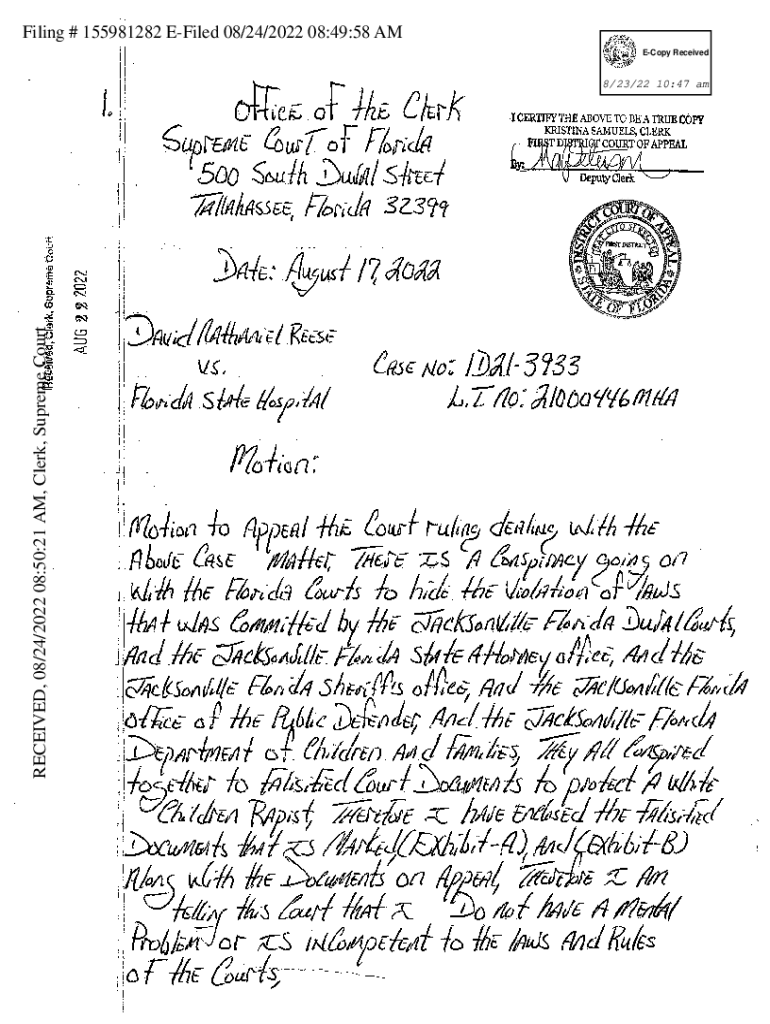 Filing # 155981282 E-Filed 08/24/2022 08:49:58 AM
E-Copy Received
8/23/22 10:47 am
1.
Office of the Clerk
Supreme Court of Florida
500 South Duval Street
Tallahassee, Florida 32399
I CERTIFY THE ABOVE TO BE A TRUE COPY
KRISTINA SAMUELS, CLERK
FIRST DISTRICT COURT OF APPEAL
By:
Deputy Clerk
DISTRICT COURT OF APPEAL
FIRST DISTRICT
STATE OF FLORIDA
Date: August 17, 2022
RECEIVED, 08/24/2022 08:50:21 AM, Clerk, Supreme Court
Received, Clerk, Supreme Court
AUG 22 2022
David Nathaniel Reese
vs.
Case No: 1D21-3933
Florida State Hospital
L.T no: 21000446MHA
Motion:
Motion to Appeal the Court ruling dealing with the
Above Case Matter, There Is A Conspiracy going on
With the Florida Courts to hide the Violation of laws
that was Committed by the Jacksonville Florida Duval Courts,
And the Jacksonville Florida State Attorney office, And the
Jacksonville Florida Sheriff's office, And the Jacksonville Florida
office of the Public Defender, And the Jacksonville Florida
Department of Children And Families, They All Conspired
together to falisified Court Documents to protect A white
Children Rapist, Therefore I have Enclosed the falisified
Documents that is Marked (Exhibit-A), And (Exhibit-B)
Along with the Documents on Appeal, Therefore I Am
telling this Court that I Do not have A mental
Problem or Is incompetent to the laws And Rules
of the Courts,